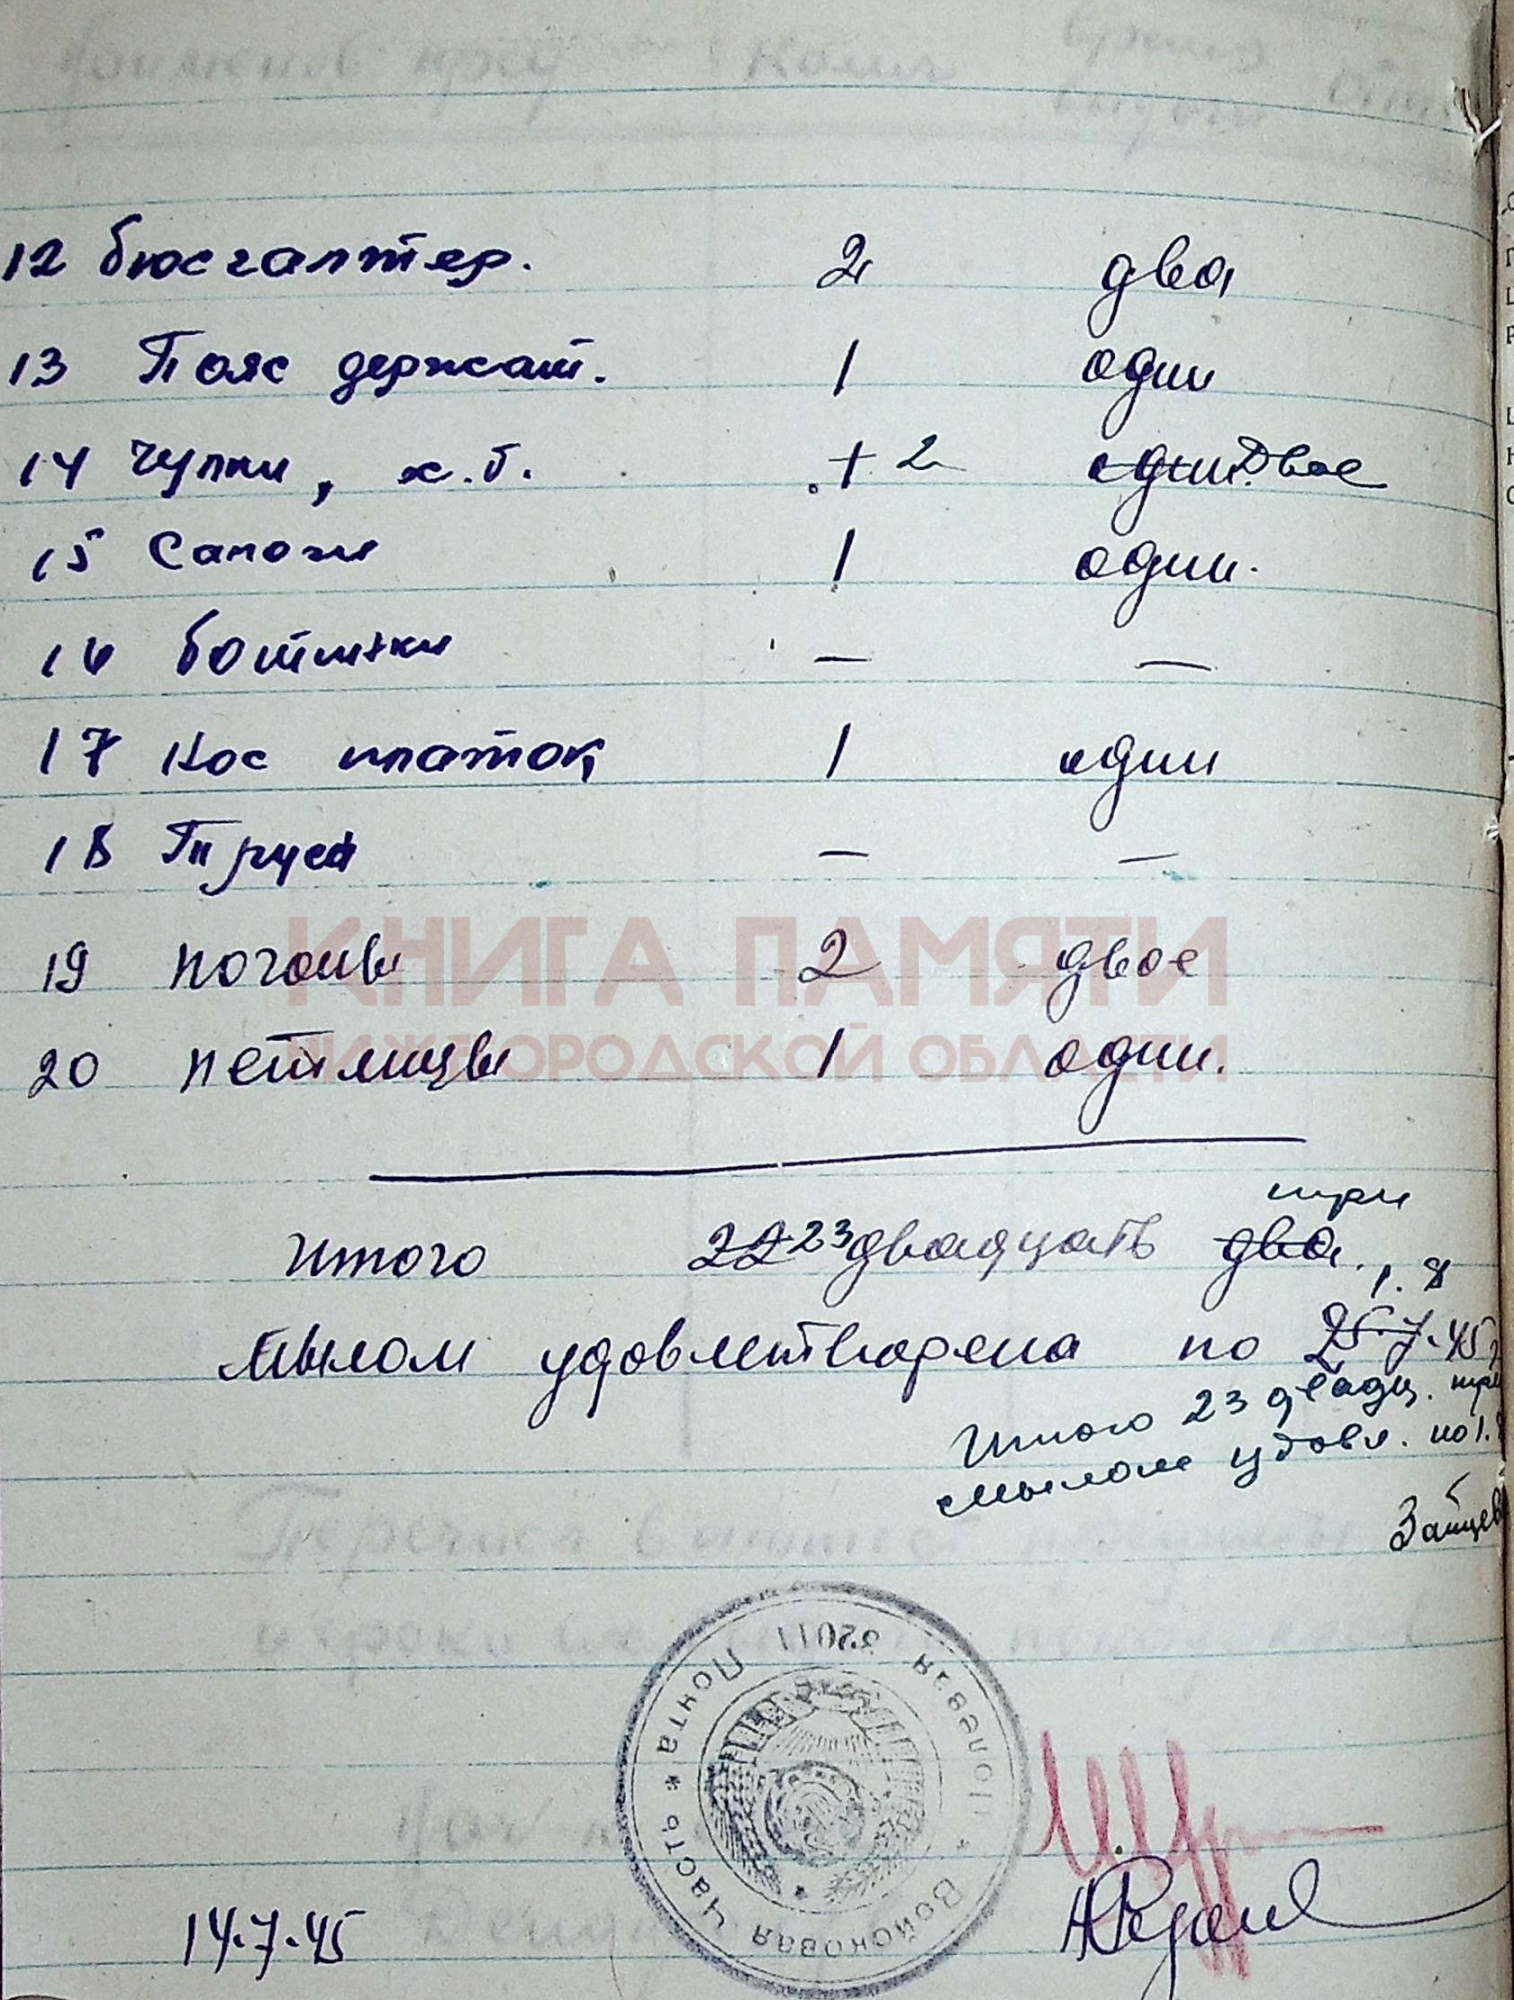 12 бюсгалтер. 2 два
13 Пояс держат. 1 один
14 чулки, х.б. 1 2 один Двое
15 Сапоги 1 один.
16 ботинки — —
17 Нос платок 1 один
18 Труса — —
19 погоны 2 двое
20 петлицы 1 один.
КНИГА ПАМЯТИ
НИЖЕГОРОДСКОЙ ОБЛАСТИ
три
Итого 22 23 двадцать два.
1.8
Мылом удовлетворена по 25.7.45
Итого 23 двадц. три
мылом удовл. по 1.8
Зайцев
Войсковая Часть * Полевая Почта * 32011
14.7.45